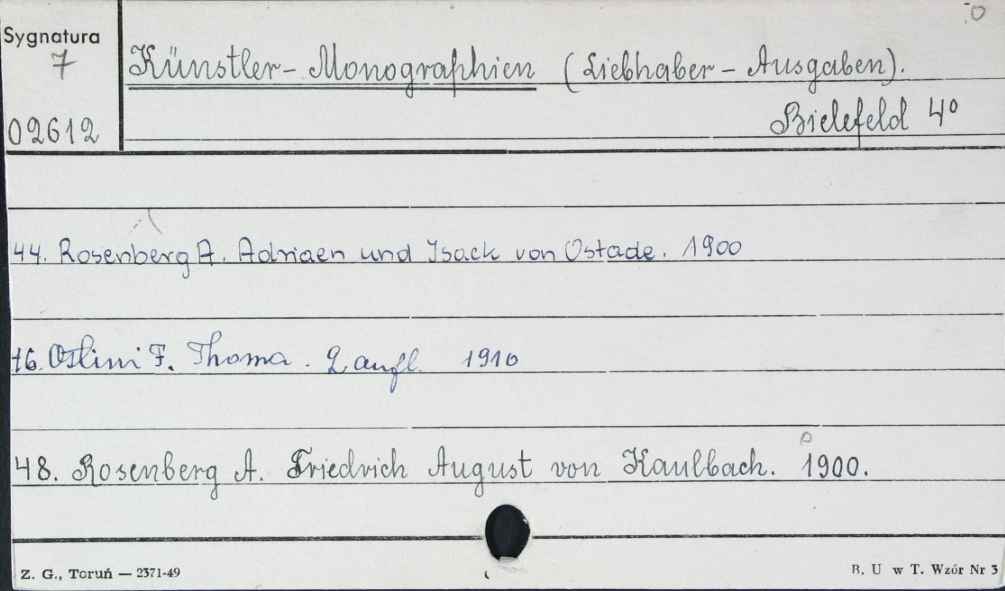 Sygnatura
7
02612
Künstler-Monographien (Liebhaber-Ausgaben).
Bielefeld 4°
44. Rosenberg A. Adriaen und Isack von Ostade. 1900
46. Ostini F. Thoma. 2 aufl. 1910
48. Rosenberg A. Friedrich August von Kaulbach. 1900.
Z. G., Toruń — 2371-49
B. U w T. Wzór Nr 3